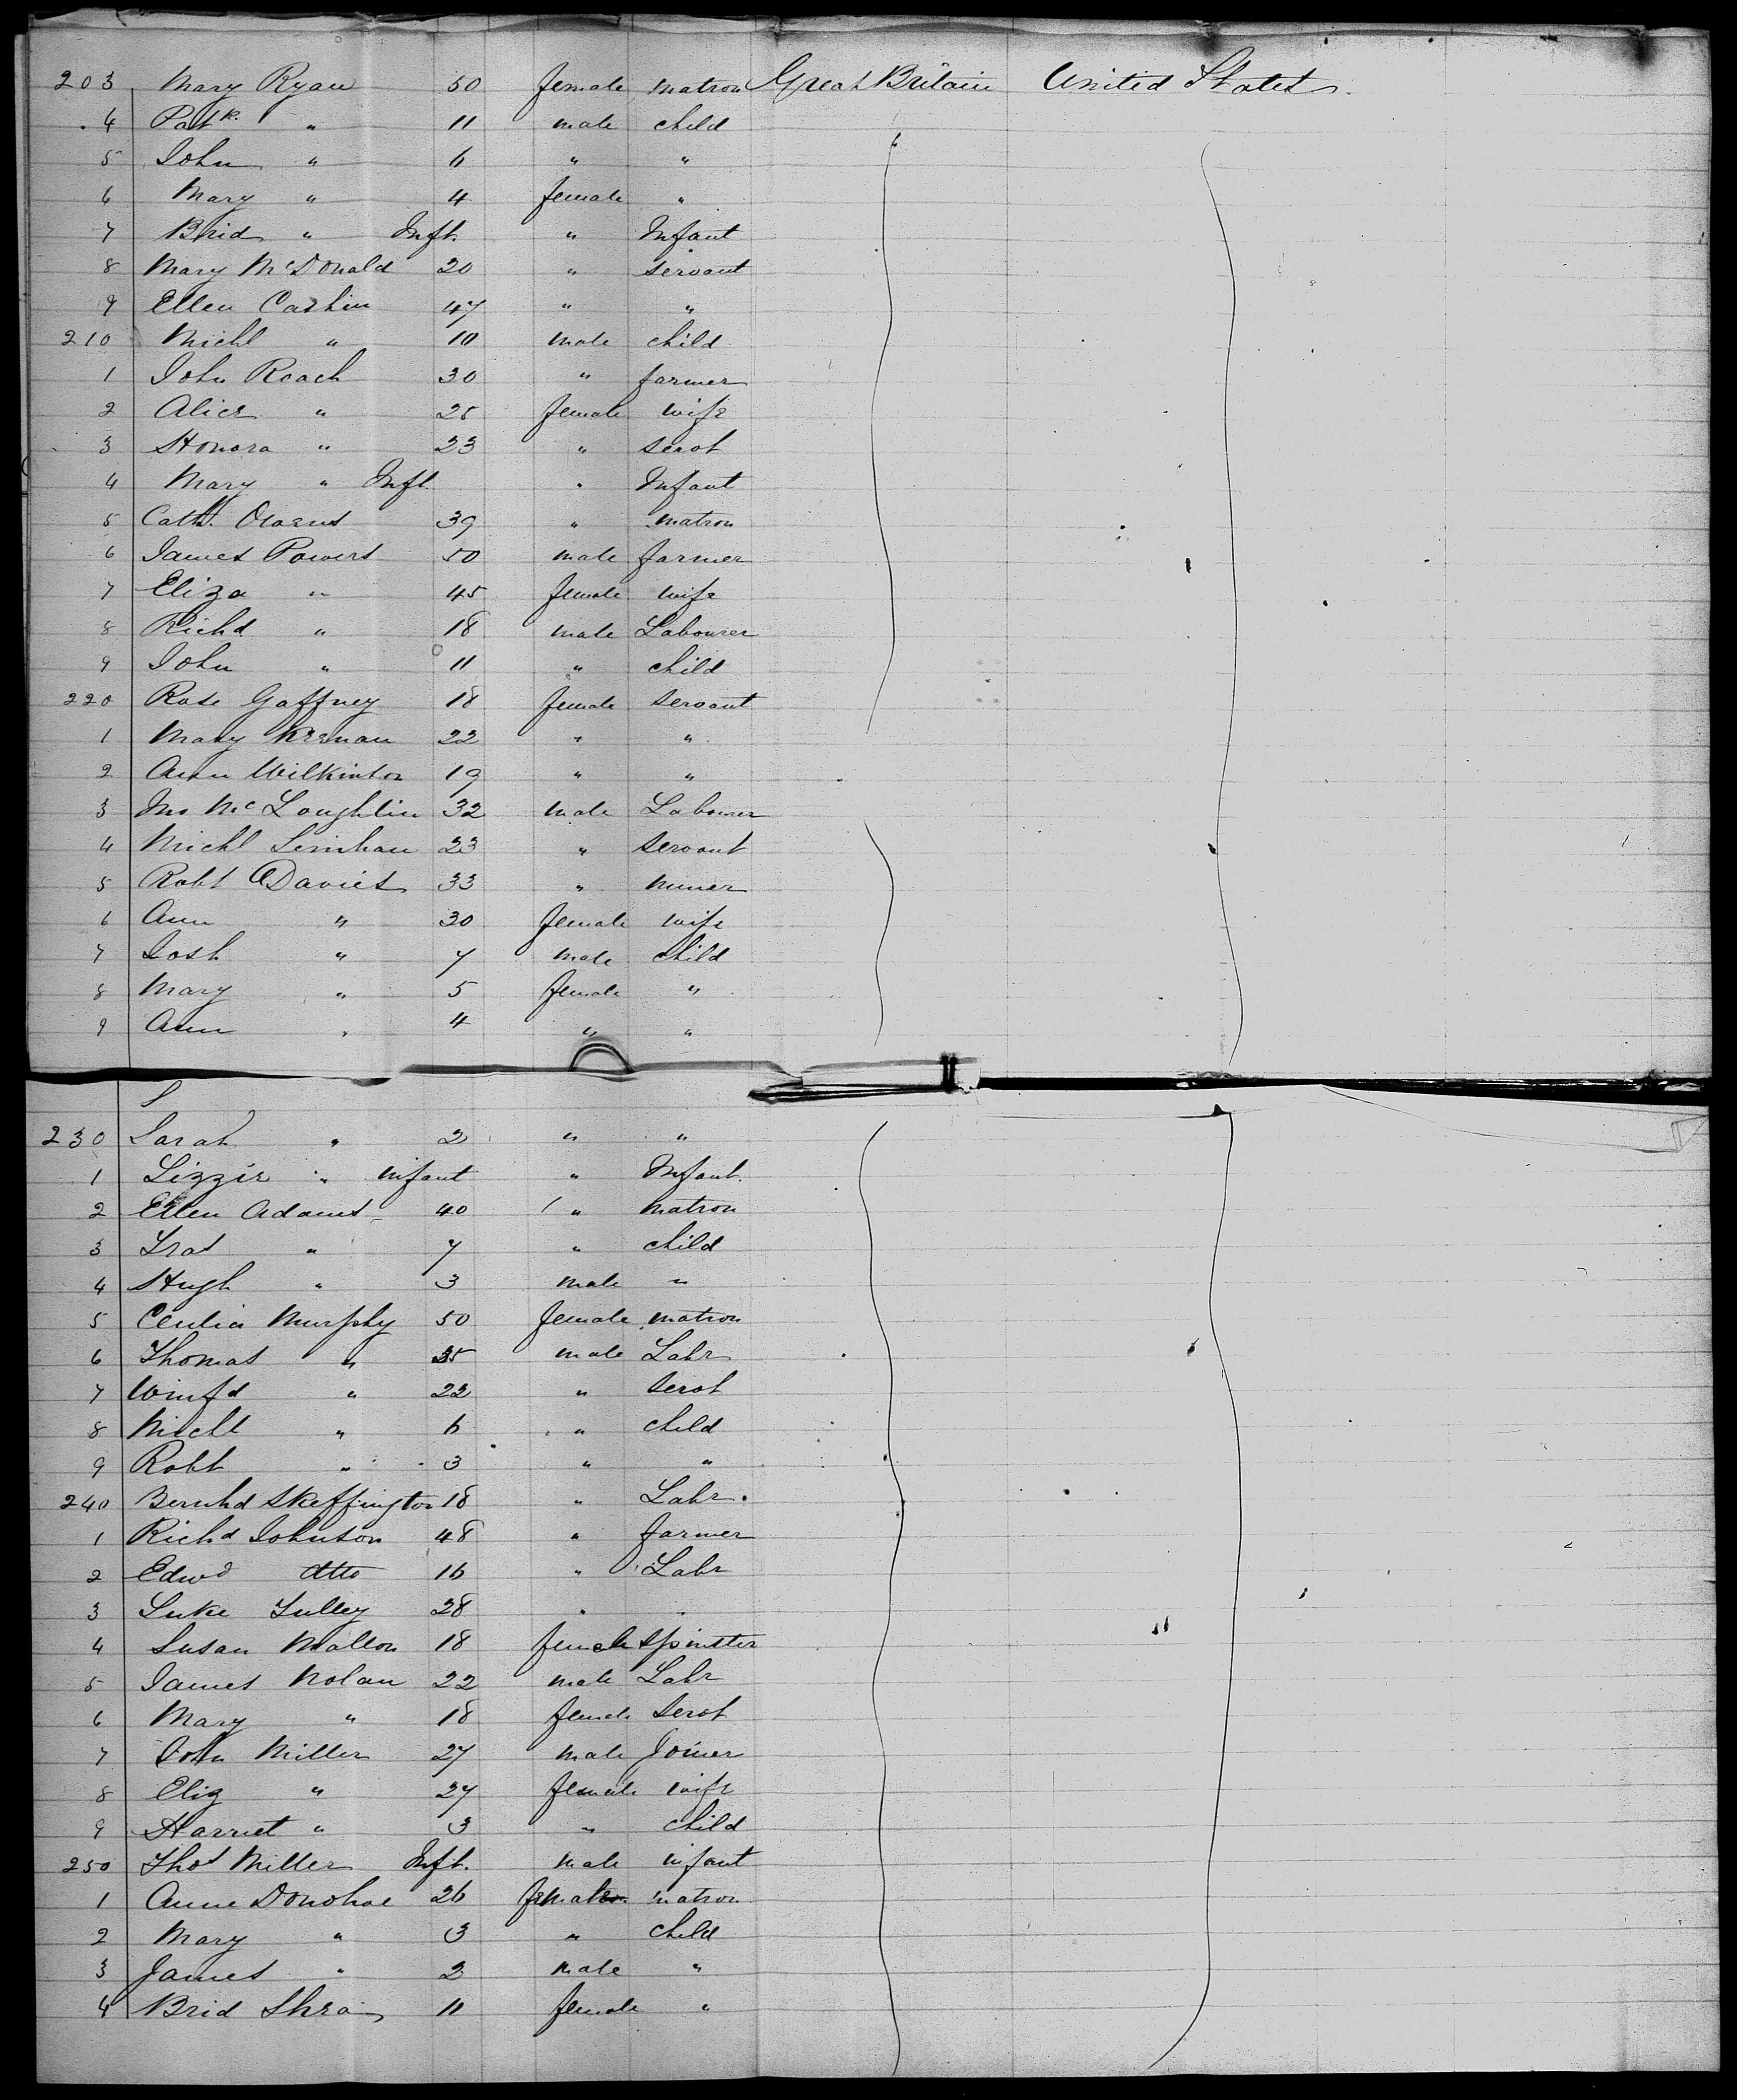 203 Mary Ryan 50 female matron Great Britain United States.
4 Patk. " 11 male child
5 John " 6 " "
6 Mary " 4 female "
7 Brid " Inft. " Infant
8 Mary McDonald 20 " servant
9 Ellen Cashin 47 " "
210 Michl " 10 male child
1 John Roach 30 " farmer
2 Alice " 25 female wife
3 Honora " 23 " servt
4 Mary " Inft. " Infant
5 Cath. Owens 39 " matron
6 James Powers 50 male farmer
7 Eliza " 45 female wife
8 Richd " 18 male Labourer
9 John " 11 " child
220 Rose Gaffney 18 female servant
1 Mary Kernan 22 " "
2 Ann Wilkinson 19 " "
3 Jno McLoughlin 32 male Labourer
4 Michl 23 " servant
5 Robt Davies 33 " miner
6 Ann " 30 female wife
7 Josh " 7 male child
8 Mary " 5 female "
9 Ann " 4 " "
S
230 Sarah " 2 " "
1 Lizzie " infant " Infant.
2 Ellen Adams 40 " matron
3 " 7 " child
4 Hugh " 3 male "
5 Cecelia Murphy 50 female matron
6 Thomas " 25 male Labr
7 Winfd " 22 " servt
8 Michl " 6 " child
9 Robt " 3 " "
240 Bernhd Skeffington 18 " Labr.
1 Richd Johnson 48 " farmer
2 Edwd ditto 16 " Labr
3 Luke Tulley 28 " "
4 Susan Mallon 18 female spinster
5 James Nolan 22 male Labr
6 Mary " 18 female servt
7 John Miller 27 male Joiner
8 Eliz " 27 female wife
9 Harriet " 3 " child
250 Thos Miller Inft. male infant
1 Anne Donohoe 26 female matron
2 Mary " 3 " child
3 James " 2 male "
4 Brid Shea 11 female "